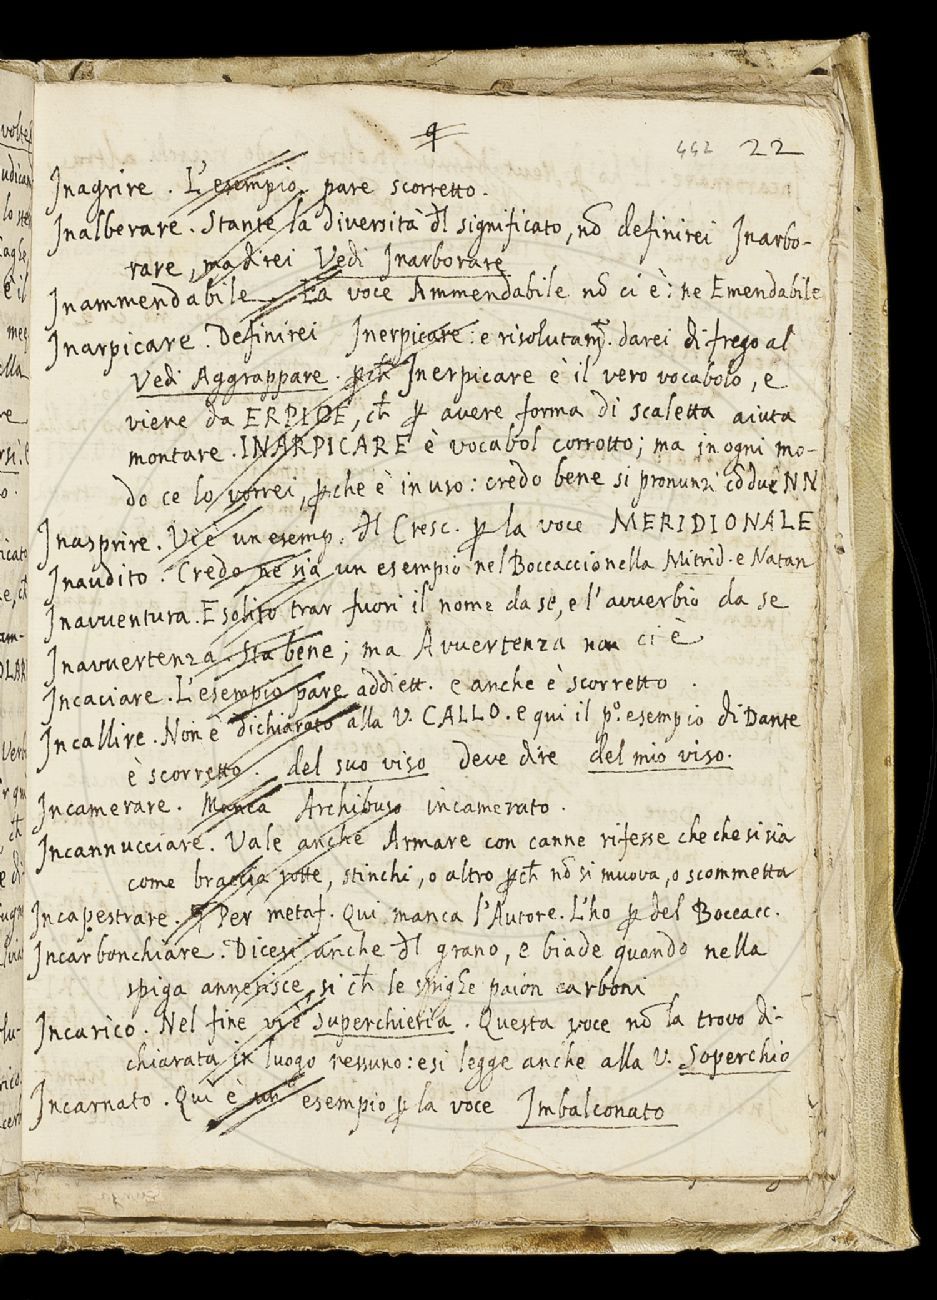 9
442 22
Inagrire. L'esempio pare scorretto.
Inalberare. Stante la diversità dl significato, nō definirei Inarbo-
rare, ma direi Vedi Inarborare
Inammendabile. La voce Ammendabile nō ci è: ne Emendabile
Inarpicare. Definirei Inerpicare: e risolutam. darei di frego al
Vedi Aggrappare. ꝑch̄ Inerpicare è il vero vocabolo, e
viene da ERPICE, ch̄ ꝑ avere forma di scaletta aiuta
montare. INARPICARE è vocabol corrotto; ma in ogni mo-
do ce lo vorrei, ꝑche è in uso: credo bene si pronunzi cō due NN
Inasprire. Vi è un esemp. dl Cresc. ꝑ la voce MERIDIONALE
Inaudito. Credo ne sia un esempio nel Boccaccio nella Mitrid. e Natan
Inavventura. E solito trar fuori il nome da se, e l'avverbio da se
Inavvertenza. Sta bene; ma Avvertenza non ci è
Incaciare. L'esempio pare addiett. e anche è scorretto.
Incallire. Non è dichiarato alla V. CALLO. e qui il pº. esempio di Dante
è scorretto. del suo viso deve dire del mio viso.
Incamerare. Manca Archibuso incamerato.
Incannucciare. Vale anche Armare con canne rifesse che che si sia
come braccia rotte, stinchi, o altro ꝑch̄ nō si muova, o scommetta
Incapestrare. Per metaf. Qui manca l'Autore. L'ho ꝑ del Boccacc.
Incarbonchiare. Dicesi anche dl grano, e biade quando nella
spiga annerisce, si ch̄ le spighe paion carboni
Incarico. Nel fine vi è superchieria. Questa voce nō la trovo di-
chiarata in luogo nessuno: e si legge anche alla V. Soperchio
Incarnato. Qui è un esempio ꝑ la voce Imbalconato